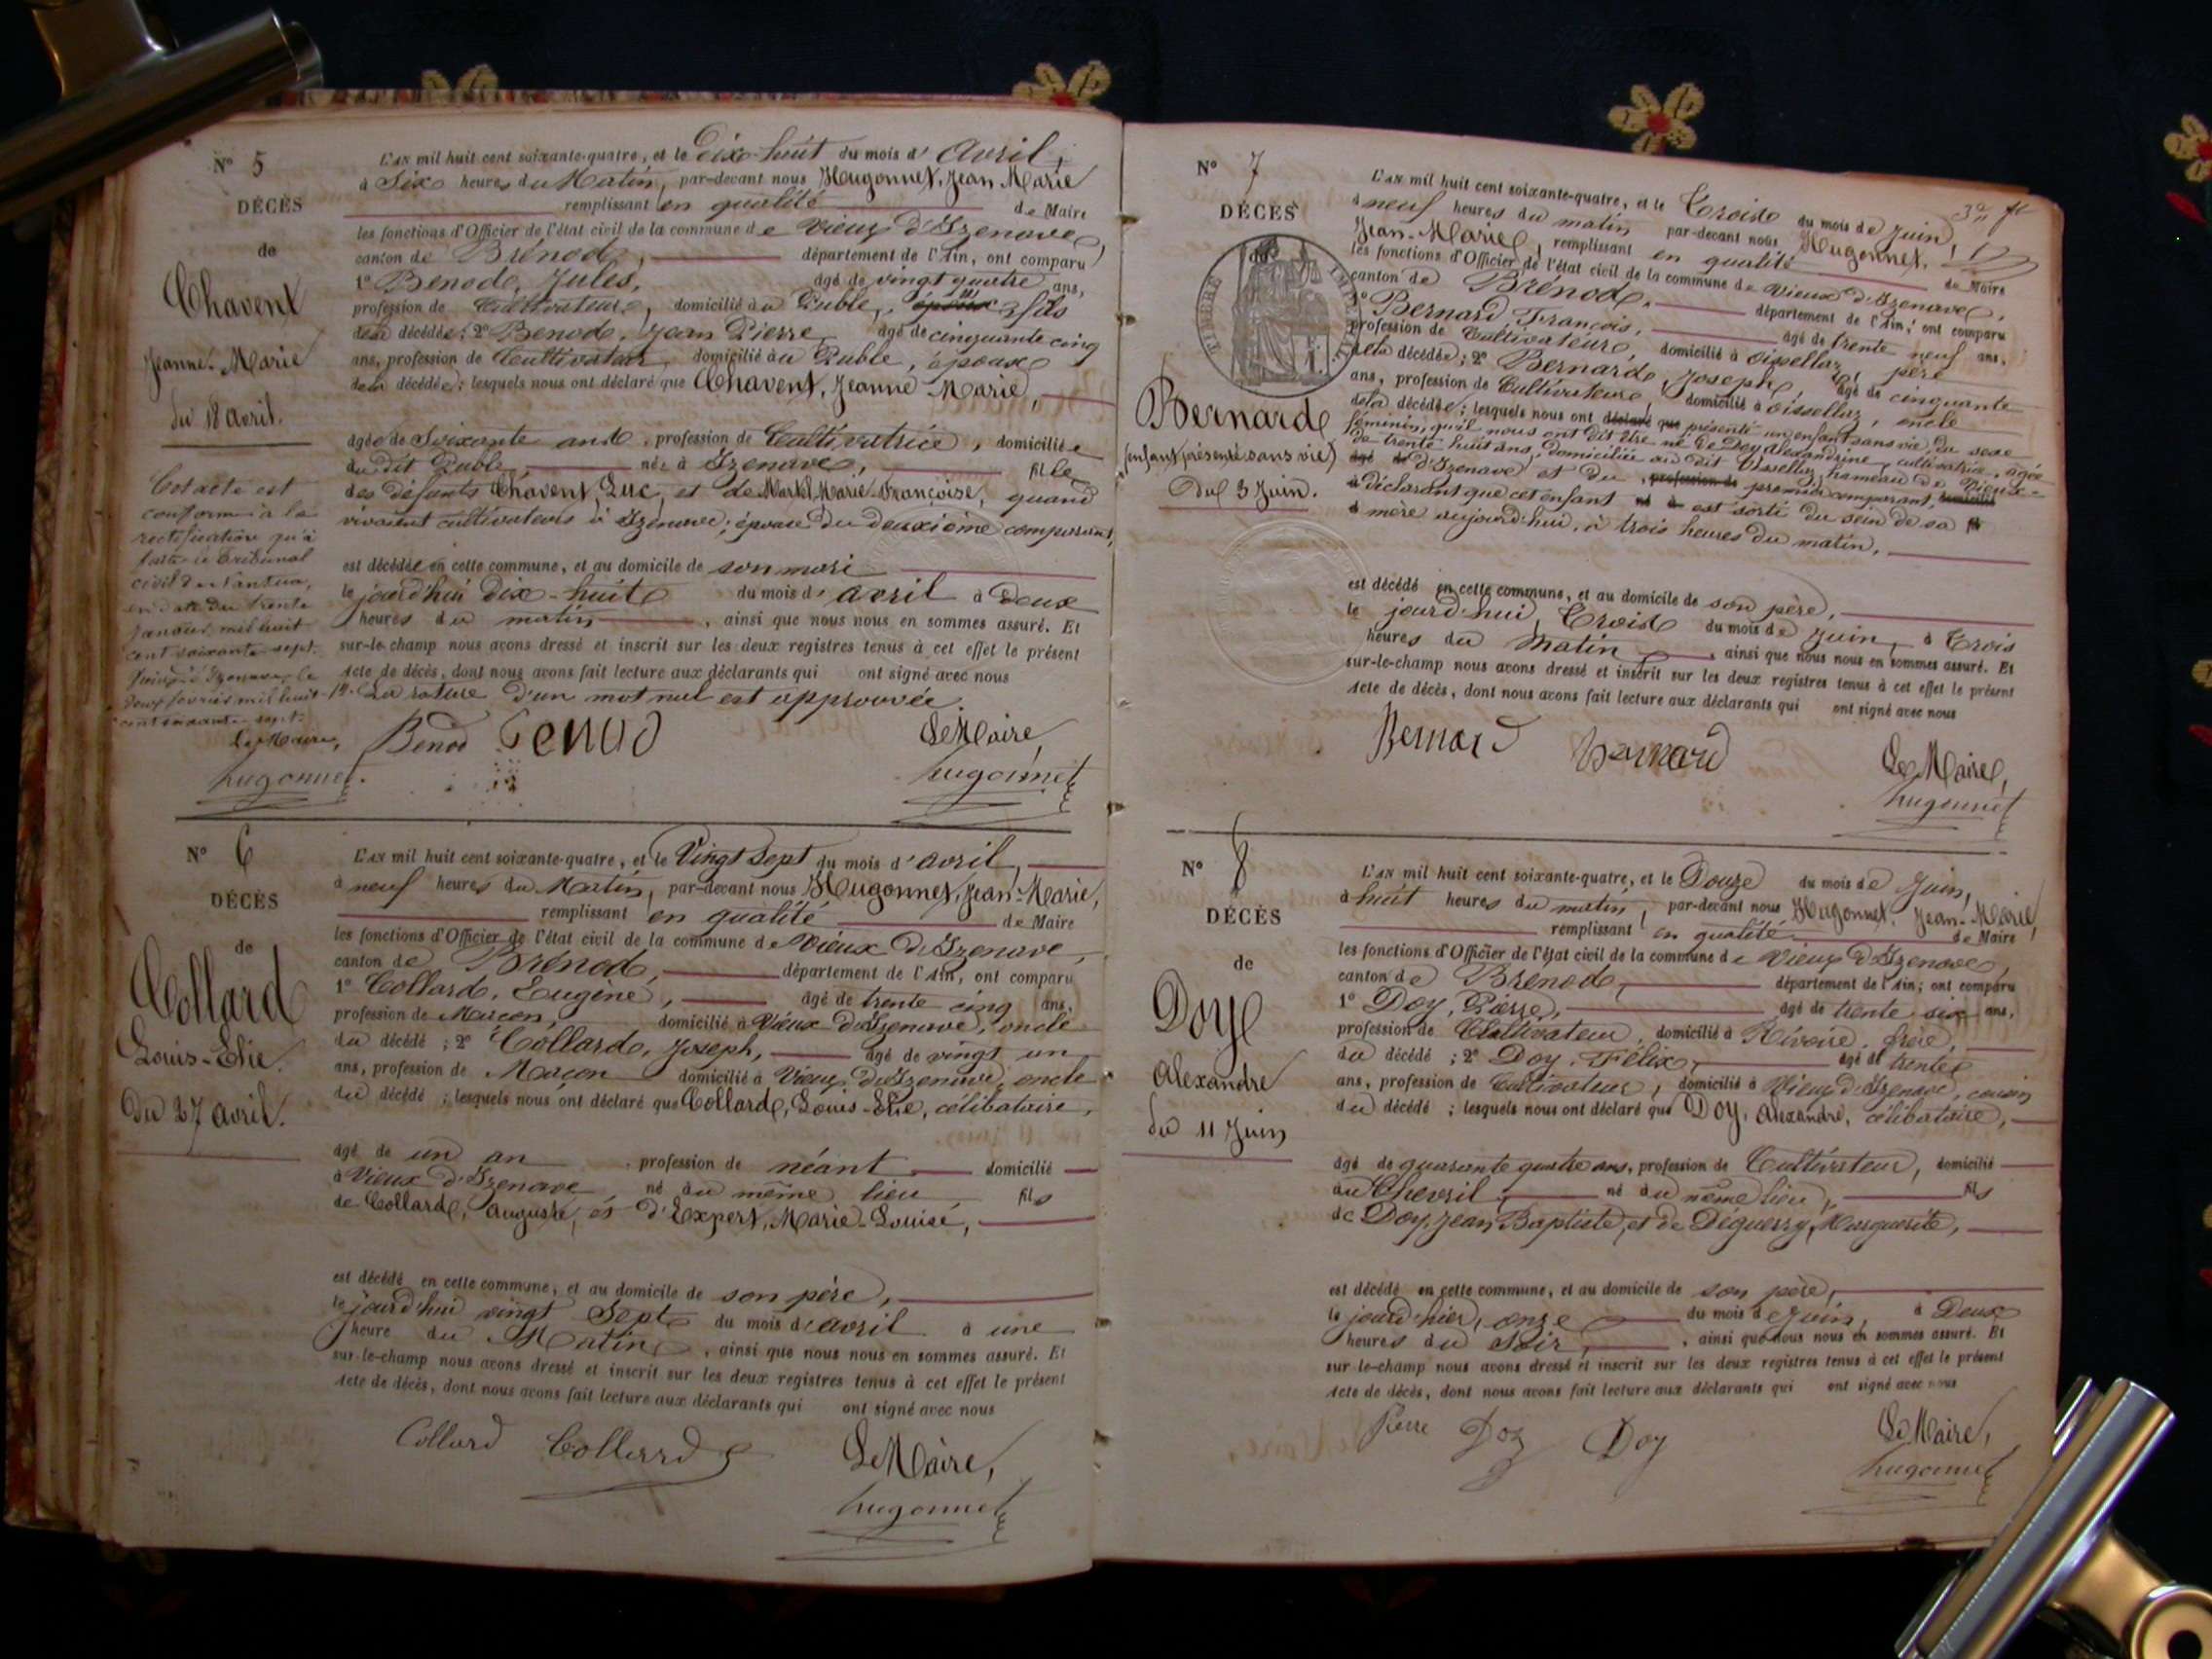 N° 5
DÉCÈS
de
Chavent
Jeanne-Marie
du 18 avril.
Cet acte est
conforme à la
rectification qu'a
faite le Tribunal
civil de Nantua,
en date du trente
janvier mil huit
cent soixante sept.
Vieux d'Izenave, le
deux février mil huit
cent soixante sept.
Le Maire,
hugonnet.
L'AN mil huit cent soixante-quatre, et le Dix-huit du mois d'Avril,
à Six heures du Matin, par-devant nous Hugonnet, Jean Marie
remplissant en qualité de Maire
les fonctions d'Officier de l'état civil de la commune de Vieux d'Izenave,
canton de Brénod, département de l'Ain, ont comparu
1° Benod, Jules, âgé de vingt quatre ans,
profession de Cultivateur, domicilié au Puble, époux fils
de la décédée; 2° Benod, Jean Pierre, âgé de cinquante cinq
ans, profession de Cultivateur, domicilié au Puble, époux
de la décédée; lesquels nous ont déclaré que Chavent, Jeanne Marie,
âgée de Soixante ans, profession de Cultivatrice, domiciliée
au dit Puble, née à Izenave, fille
des défunts Chavent, Luc, et de Martel Marie Françoise, quand
vivaient cultivateurs à Izenave; épouse du deuxième comparant,
est décédée en cette commune, et au domicile de son mari
le jourd'hui Dix-huit du mois d'avril à Deux
heures du matin, ainsi que nous nous en sommes assuré. Et
sur-le-champ nous avons dressé et inscrit sur les deux registres tenus à cet effet le présent
Acte de décès, dont nous avons fait lecture aux déclarants qui ont signé avec nous
La rature d'un mot nul est approuvée.
Benod Benod Le Maire,
hugonnet
N° 6
DÉCÈS
de
Collard
Louis-Elie.
Du 27 avril.
L'AN mil huit cent soixante-quatre, et le Vingt Sept du mois d'avril,
à neuf heures du Matin, par-devant nous Hugonnet, Jean-Marie,
remplissant en qualité de Maire
les fonctions d'Officier de l'état civil de la commune de Vieux d'Izenave,
canton de Brénod, département de l'Ain, ont comparu
1° Collard, Eugène, âgé de trente cinq ans,
profession de Maçon, domicilié à Vieux d'Izenave, oncle
du décédé; 2° Collard, Joseph, âgé de vingt un
ans, profession de Maçon domicilié à Vieux d'Izenave, oncle
du décédé; lesquels nous ont déclaré que Collard, Louis-Elie, célibataire,
âgé de un an, profession de néant domicilié
à Vieux d'Izenave, né au même lieu, fils
de Collard, Auguste, et d'Expert, Marie-Louise,
est décédé en cette commune, et au domicile de son père,
le jourd'hui vingt Sept du mois d'avril à une
heure du Matin, ainsi que nous nous en sommes assuré. Et
sur-le-champ nous avons dressé et inscrit sur les deux registres tenus à cet effet le présent
Acte de décès, dont nous avons fait lecture aux déclarants qui ont signé avec nous
Collard Collard Le Maire,
hugonnet
N° 7
DÉCÈS
de
Bernard
(enfant présenté sans vie)
Du 3 Juin.
L'AN mil huit cent soixante-quatre, et le Trois du mois de Juin,
à neuf heures du matin par-devant nous Hugonnet,
Jean-Marie, remplissant en qualité de Maire
les fonctions d'Officier de l'état civil de la commune de Vieux d'Izenave,
canton de Brénod, département de l'Ain, ont comparu
1° Bernard François, âgé de trente neuf ans,
profession de Cultivateur, domicilié à Oisellaz, père
de la décédée; 2° Bernard, Joseph, âgé de cinquante
ans, profession de Cultivateur, domicilié à Oissellaz, oncle
de la décédée; lesquels nous ont déclaré que présenté un enfant sans vie, du sexe
féminin, qu'il nous ont dit être né de Doy Alexandrine, cultivatrice, âgée
de trente huit ans, domiciliée au dit Oissellaz, hameau de Vieux-
âgé de d'Izenave et du profession de premier comparant, domicilié
à déclarant que cet enfant né à est sorti du sein de sa fil
d mère aujourd'hui, à trois heures du matin,
est décédé en cette commune, et au domicile de son père,
le jourd'hui, Trois du mois de Juin, à Trois
heures du Matin, ainsi que nous nous en sommes assuré. Et
sur-le-champ nous avons dressé et inscrit sur les deux registres tenus à cet effet le présent
Acte de décès, dont nous avons fait lecture aux déclarants qui ont signé avec nous
Bernard Bernard
Le Maire,
hugonnet
N° 8
DÉCÈS
de
Doy
Alexandre
du 11 Juin
L'AN mil huit cent soixante-quatre, et le Douze du mois de Juin,
à huit heures du matin, par-devant nous Hugonnet, Jean-Marie,
remplissant en qualité de Maire
les fonctions d'Officier de l'état civil de la commune de Vieux d'Izenave,
canton de Brénod, département de l'Ain; ont comparu
1° Doy, Pierre, âgé de trente six ans,
profession de Cultivateur, domicilié à Rivoire, frère,
du décédé; 2° Doy, Félix, âgé de trente
ans, profession de Cultivateur, domicilié à Vieux d'Izenave, cousin
du décédé; lesquels nous ont déclaré que Doy, Alexandre, célibataire,
âgé de quarante quatre ans, profession de Cultivateur, domicilié
au Chevril, né au même lieu, fils
de Doy, Jean Baptiste, et de Déguerry, Marguerite,
est décédé en cette commune, et au domicile de son père,
le jourd'hier, onze du mois de Juin, à Deux
heures du Soir, ainsi que nous nous en sommes assuré. Et
sur-le-champ nous avons dressé et inscrit sur les deux registres tenus à cet effet le présent
Acte de décès, dont nous avons fait lecture aux déclarants qui ont signé avec nous
Pierre Doy Doy Le Maire,
hugonnet